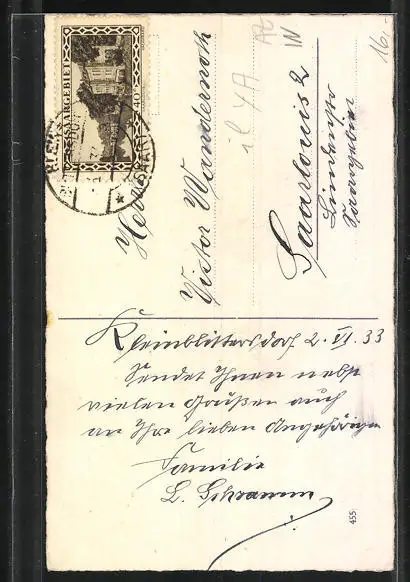 SAARGEBIET
40
Herrn
Victor Wandernoth
Saarlouis 2
Lindenstr
Saargebiet
16.-
Kleinblittersdorf 2. VI. 33
Sendet Ihnen nebst
vielen Grüßen auch
an Ihre lieben Angehörigen
Familie
L. Schramm
455